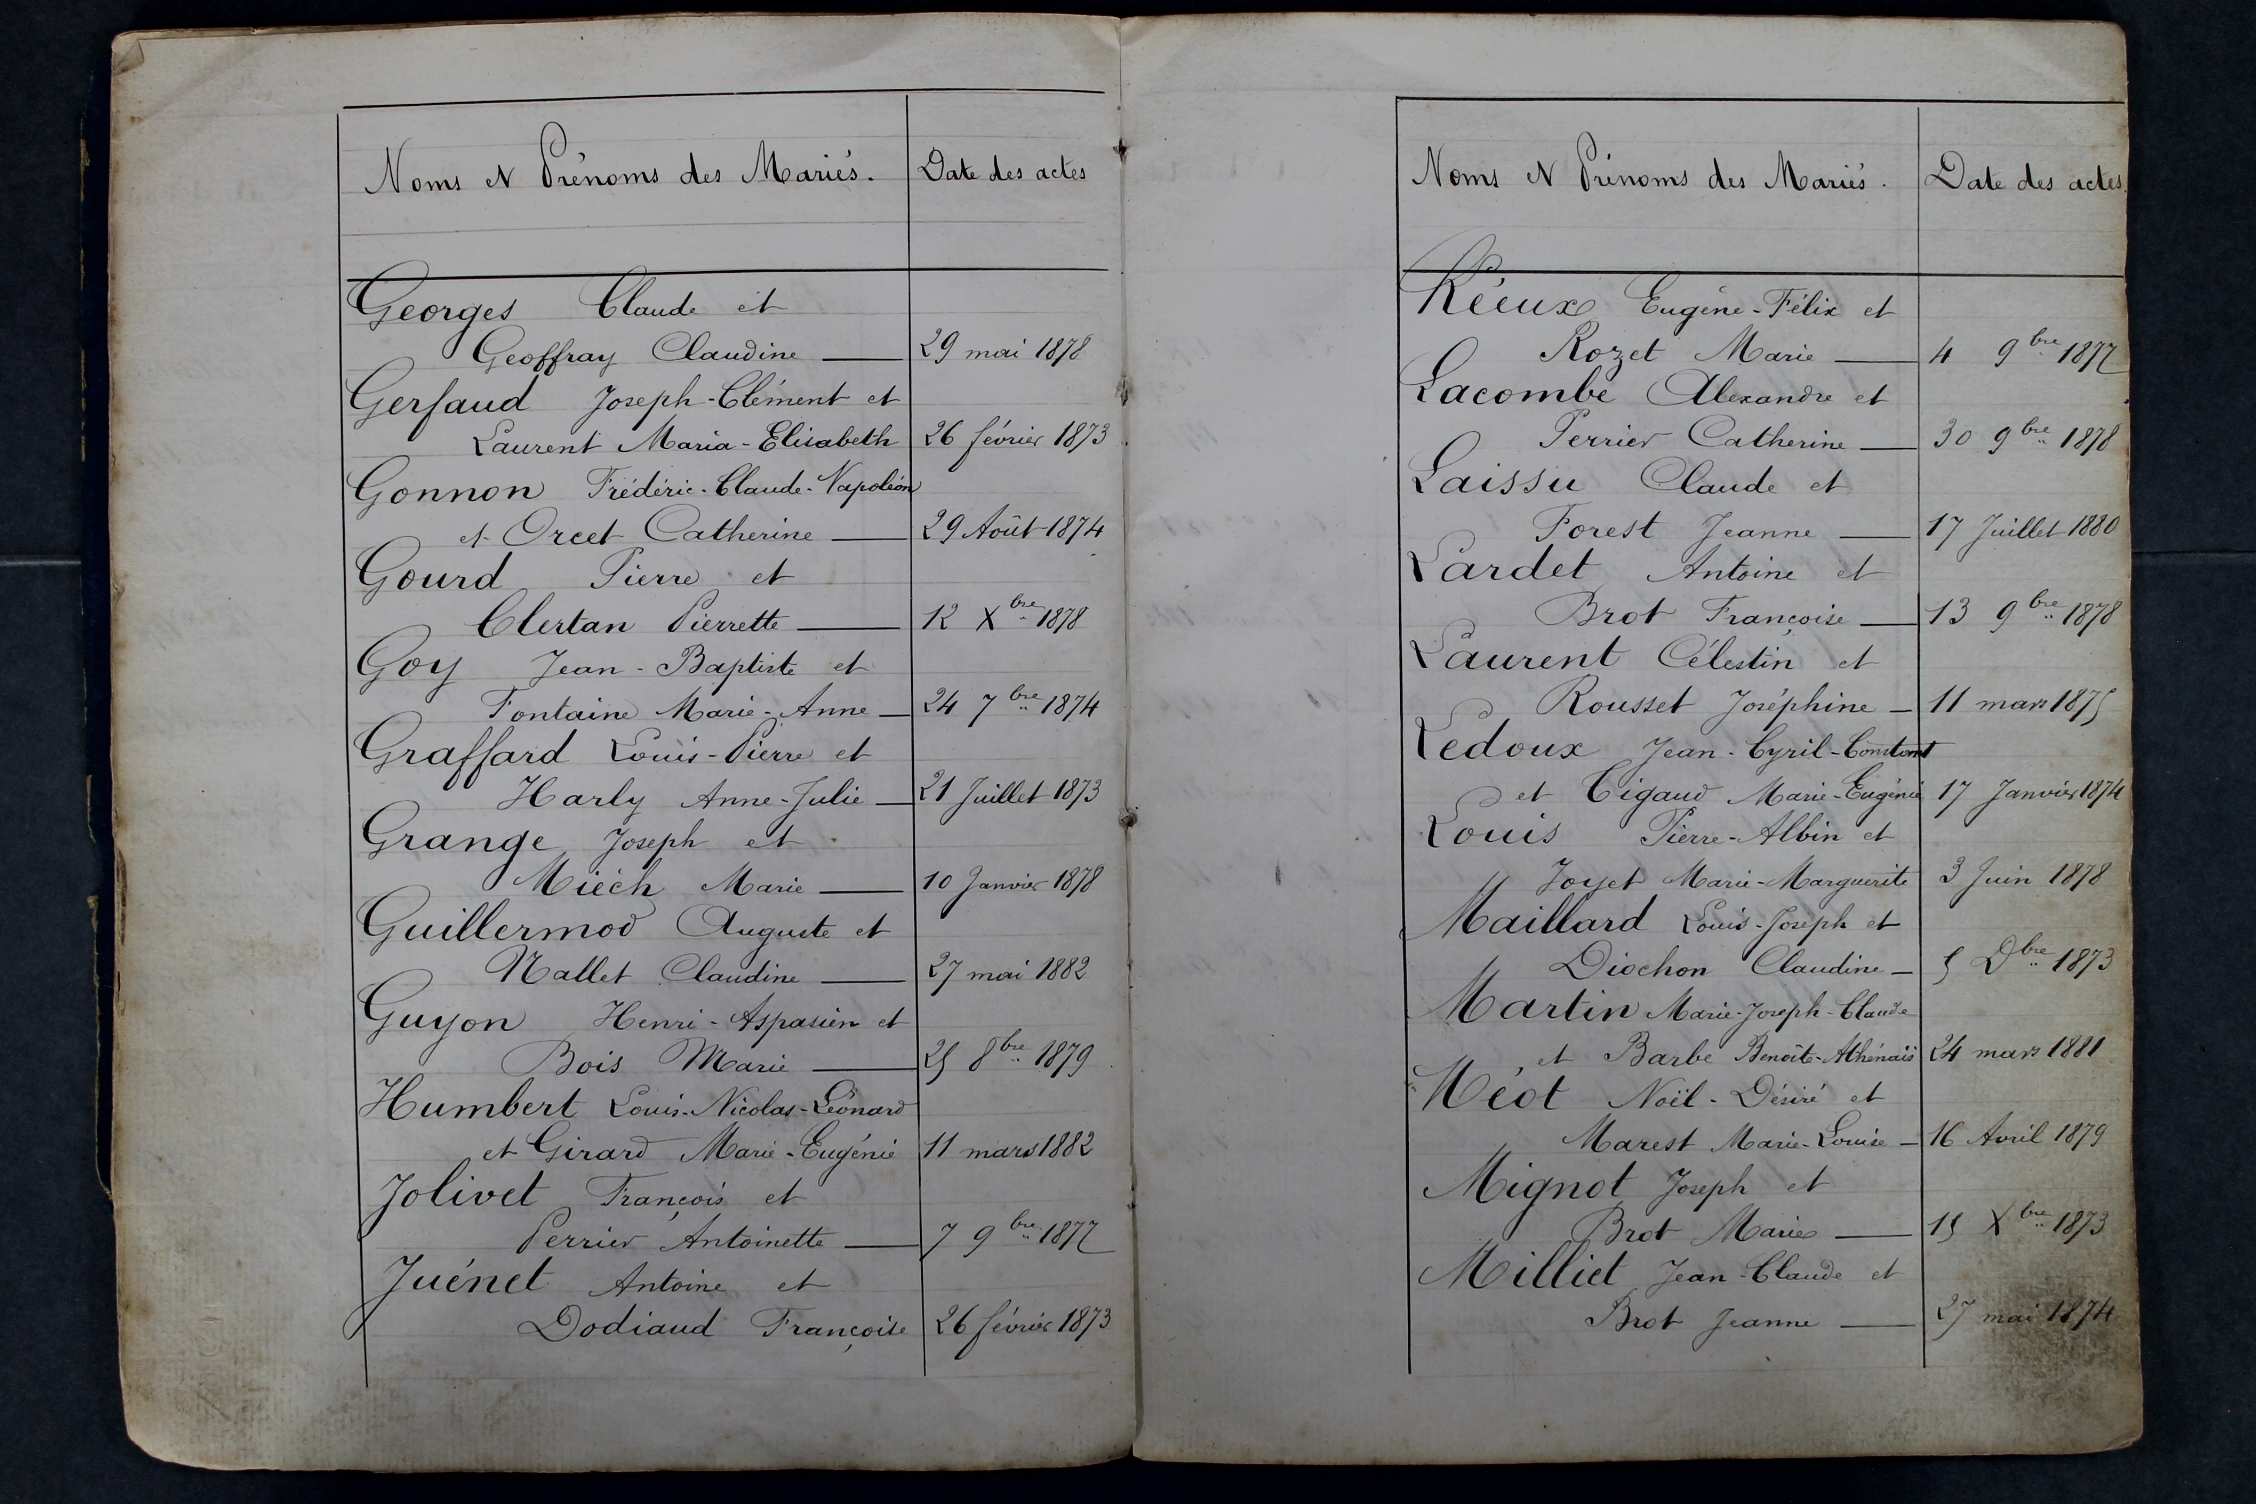 Noms et Prénoms des Mariés. Date des actes
Georges Claude et
Geoffray Claudine — 29 mai 1878
Gerfaud Joseph-Clément et
Laurent Maria-Elisabeth 26 février 1873
Gonnon Frédéric-Claude-Napoléon
et Orcet Catherine — 29 Août 1874
Gourd Pierre et
Clertan Pierrette — 12 Xbre 1878
Goy Jean-Baptiste et
Fontaine Marie-Anne — 24 7bre 1874
Graffard Louis-Pierre et
Harly Anne-Julie — 21 Juillet 1873
Grange Joseph et
Miéch Marie — 10 Janvier 1878
Guillermod Auguste et
Nallet Claudine — 27 mai 1882
Guyon Henri-Aspasien et
Bois Marie — 25 8bre 1879
Humbert Louis-Nicolas-Léonard
et Girard Marie-Eugénie 11 mars 1882
Jolivet François et
Perrier Antoinette — 7 9bre 1877
Juénet Antoine et
Dodiaud Françoise 26 février 1873
Noms et Prénoms des Mariés. Date des actes.
Kéeux Eugène-Félix et
Rozet Marie — 4 9bre 1877
Lacombe Alexandre et
Perrier Catherine — 30 9bre 1878
Laissu Claude et
Forest Jeanne — 17 Juillet 1880
Lardet Antoine et
Brot Françoise — 13 9bre 1878
Laurent Célestin et
Rousset Joséphine — 11 mars 1875
Ledoux Jean-Cyril-Constant
et Cigaud Marie-Eugénie 17 Janvier 1874
Louis Pierre-Albin et
Joyet Marie-Marguerite 3 Juin 1878
Maillard Louis-Joseph et
Diochon Claudine — 5 Dbre 1873
Martin Marie-Joseph-Claude
et Barbe Benoîte-Athénaïs 24 mars 1881
Méot Noël-Désiré et
Marest Marie-Louise — 16 Avril 1879
Mignot Joseph et
Brot Marie — 15 Xbre 1873
Milliet Jean-Claude et
Brot Jeanne — 27 mai 1874